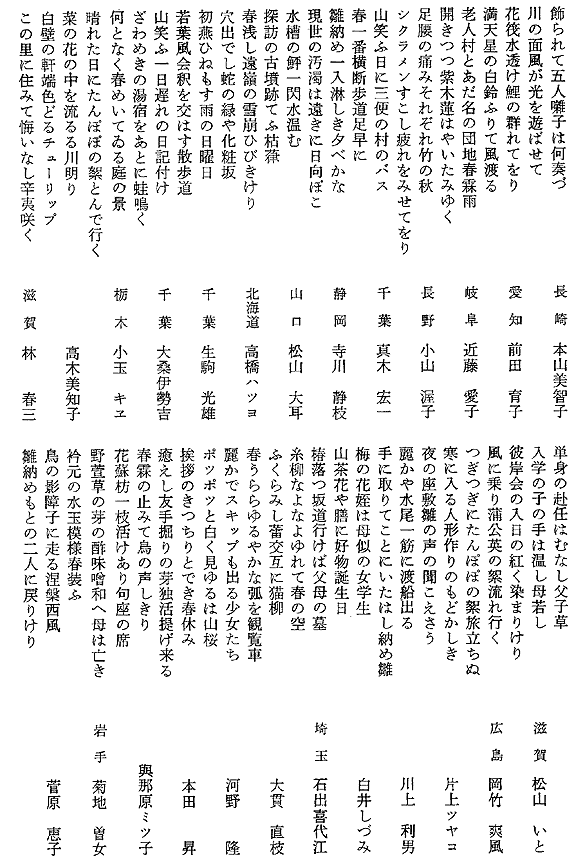 飾られて五人囃子は何奏づ 長崎 本山美智子
川の面風が光を遊ばせて
花筏水透け鯉の群れてをり 愛知 前田育子
満天星の白鈴ふりて風渡る
老人村とあだ名の団地春霖雨 岐阜 近藤愛子
開きつつ紫木蓮はやいたみゆく
足腰の痛みそれぞれ竹の秋 長野 小山渥子
シクラメンすこし疲れをみせてをり
山笑ふ日に三便の村のバス 千葉 真木宏一
春一番横断歩道足早に
雛納め一入淋しき夕べかな 静岡 寺川静枝
現世の汚濁は遠きに日向ぼこ
水槽の鮃一閃水温む 山口 松山大耳
探訪の古墳跡てふ枯蘀
春浅し遠嶺の雪崩ひびきけり 北海道 高橋ハツヨ
穴出でし蛇の緑や化粧坂
初燕ひねもす雨の日曜日 千葉 生駒光雄
若葉風会釈を交はす散歩道
山笑ふ一日遅れの日記付け 千葉 大桑伊勢吉
ざわめきの湯宿をあとに蛙鳴く
何となく春めいてゐる庭の景 栃木 小玉キヱ
晴れた日にたんぽぽの絮とんで行く
菜の花の中を流るる川明り 高木美知子
白壁の軒端色どるチューリップ
この里に住みて悔いなし辛夷咲く 滋賀 林春三
単身の赴任はむなし父子草
入学の子の手は温し母若し 滋賀 松山いと
彼岸会の入日の紅く染まりけり
風に乗り蒲公英の絮流れ行く 広島 岡竹爽風
つぎつぎにたんぽぽの絮旅立ちぬ
寒に入る人形作りのもどかしき 片上ツヤコ
夜の座敷雛の声の聞こえさう
麗かや水尾一筋に渡船出る 川上利男
手に取りてことにいたはし納め雛
梅の花姪は母似の女学生 白井しづみ
山茶花や膳に好物誕生日
椿落つ坂道行けば父母の墓 埼玉 石出喜代江
糸柳なよなよゆれて春の空
ふくらみし蕾交互に猫柳 大貫直枝
春うららゆるやかな弧を観覧車
麗かでスキップも出る少女たち 河野隆
ポツポツと白く見ゆるは山桜
挨拶のきつちりとでき春休み 本田昇
癒えし友手掘りの芽独活提げ来る
春霖の止みて鳥の声しきり 與那原ミツ子
花蘇枋一枝活けあり句座の席
野萱草の芽の酢味噌和へ母は亡き 岩手 菊地曽女
衿元の水玉模様春装ふ
鳥の影障子に走る涅槃西風 菅原恵子
雛納めもとの二人に戻りけり